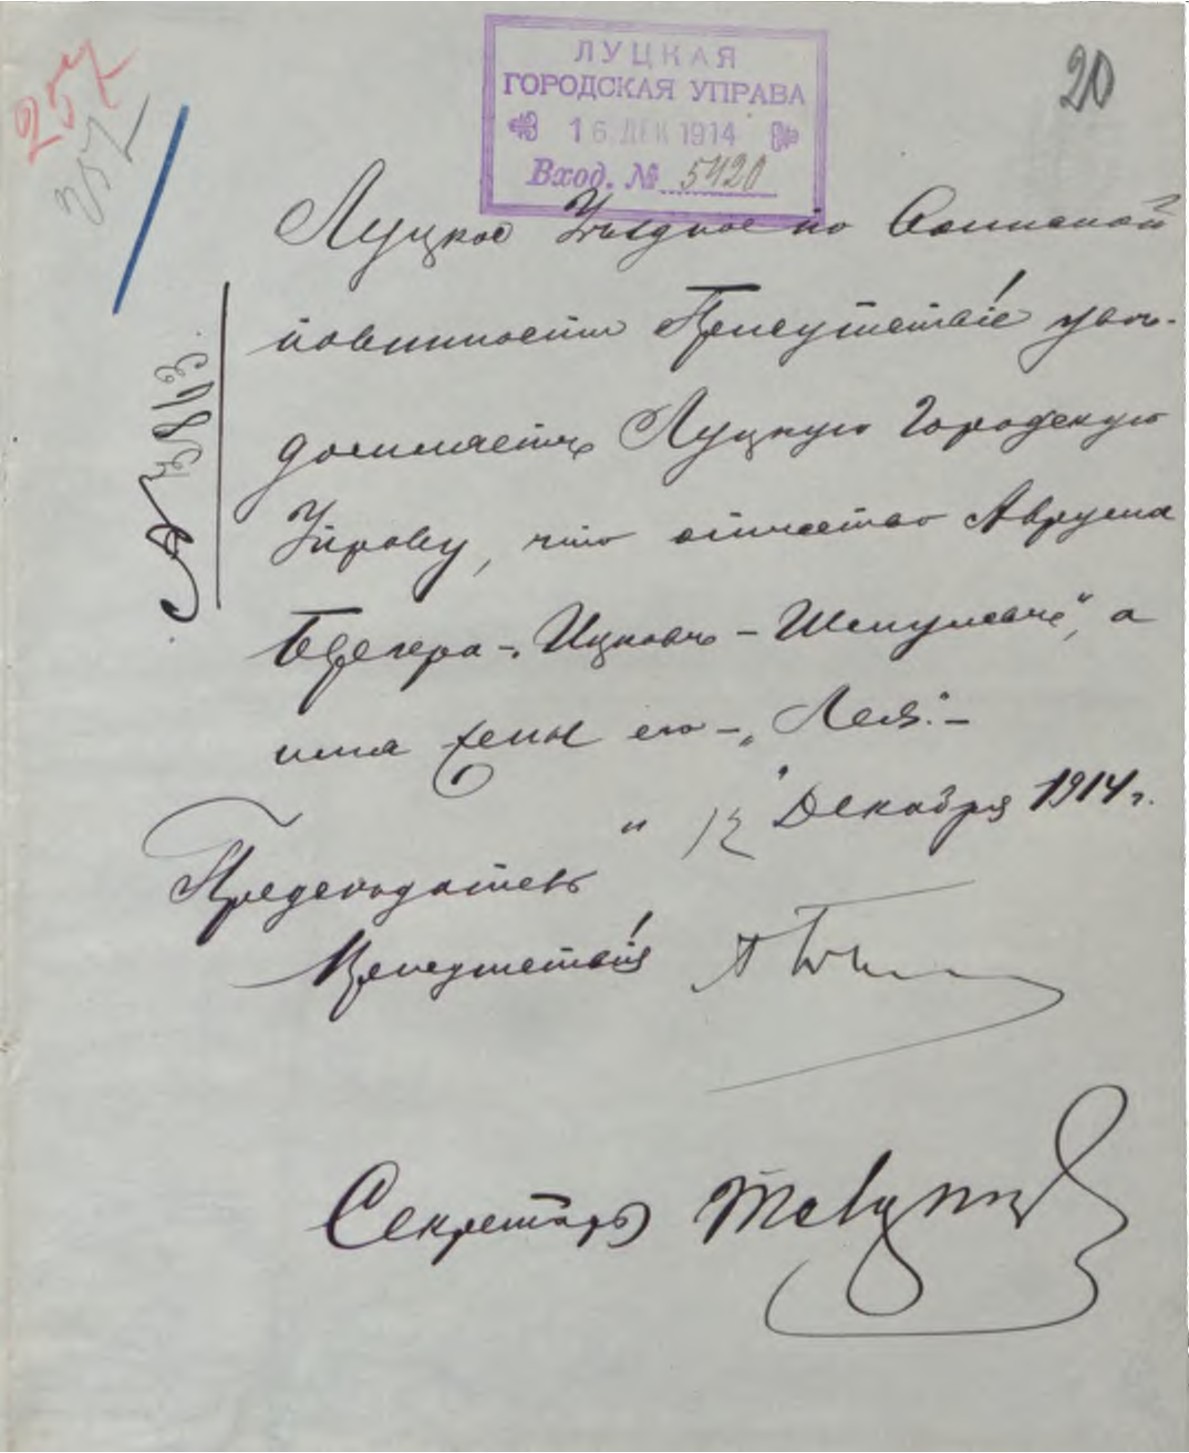 257
257
20
ЛУЦКАЯ
ГОРОДСКАЯ УПРАВА
16 ДЕК 1914
Вход. № 5420
№ 3843.
Луцкое Уѣздное по Воинской
повинности Присутствіе увѣ-
домляетъ Луцкую Городскую
Управу, что отчество Аврума
- „Ицковъ-Шмулевъ“, а
имя жены его - „Лея“. -
„12“ Декабря 1914 г.
Председатель
Присутствія
Секретарь